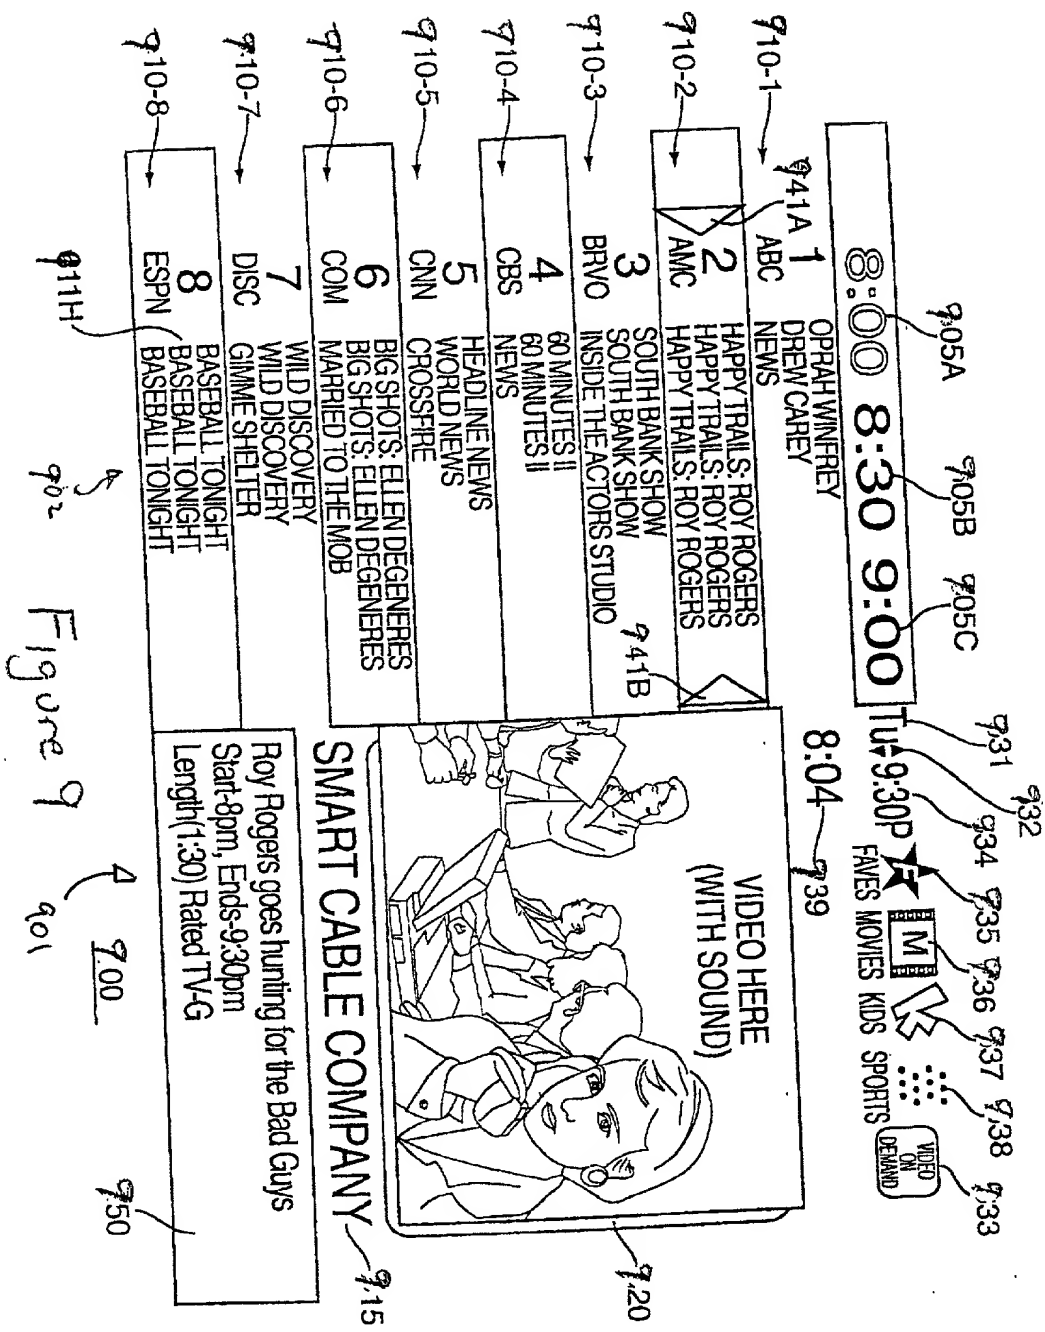 905A
905B
905C
931
932
934
935
936
937
938
933
8:00 8:30 9:00
Tu 9:30P
F
FAVES
M
MOVIES
K
KIDS
SPORTS
VIDEO
ON
DEMAND
8:04
939
910-1
1
ABC
OPRAH WINFREY
DREW CAREY
NEWS
941A
910-2
2
AMC
HAPPY TRAILS: ROY ROGERS
HAPPY TRAILS: ROY ROGERS
HAPPY TRAILS: ROY ROGERS
941B
910-3
3
BRVO
SOUTH BANK SHOW
SOUTH BANK SHOW
INSIDE THE ACTORS STUDIO
910-4
4
CBS
60 MINUTES II
60 MINUTES II
NEWS
910-5
5
CNN
HEADLINE NEWS
WORLD NEWS
CROSSFIRE
910-6
6
COM
BIG SHOTS: ELLEN DEGENERES
BIG SHOTS: ELLEN DEGENERES
MARRIED TO THE MOB
910-7
7
DISC
WILD DISCOVERY
WILD DISCOVERY
GIMME SHELTER
910-8
8
ESPN
BASEBALL TONIGHT
BASEBALL TONIGHT
BASEBALL TONIGHT
911H
VIDEO HERE
(WITH SOUND)
920
SMART CABLE COMPANY
915
Roy Rogers goes hunting for the Bad Guys
Start-8pm, Ends-9:30pm
Length(1:30) Rated TV-G
950
902
901
900
Figure 9